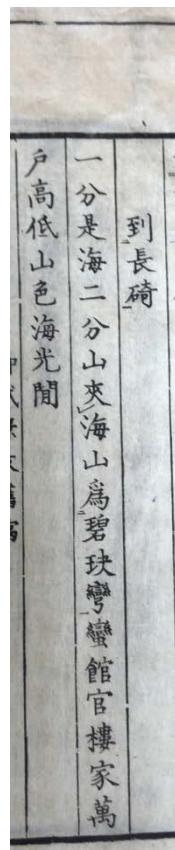 到長碕
一分是海二分山夾海山爲碧玦彎蠻館官樓家萬
戸高低山色海光閒